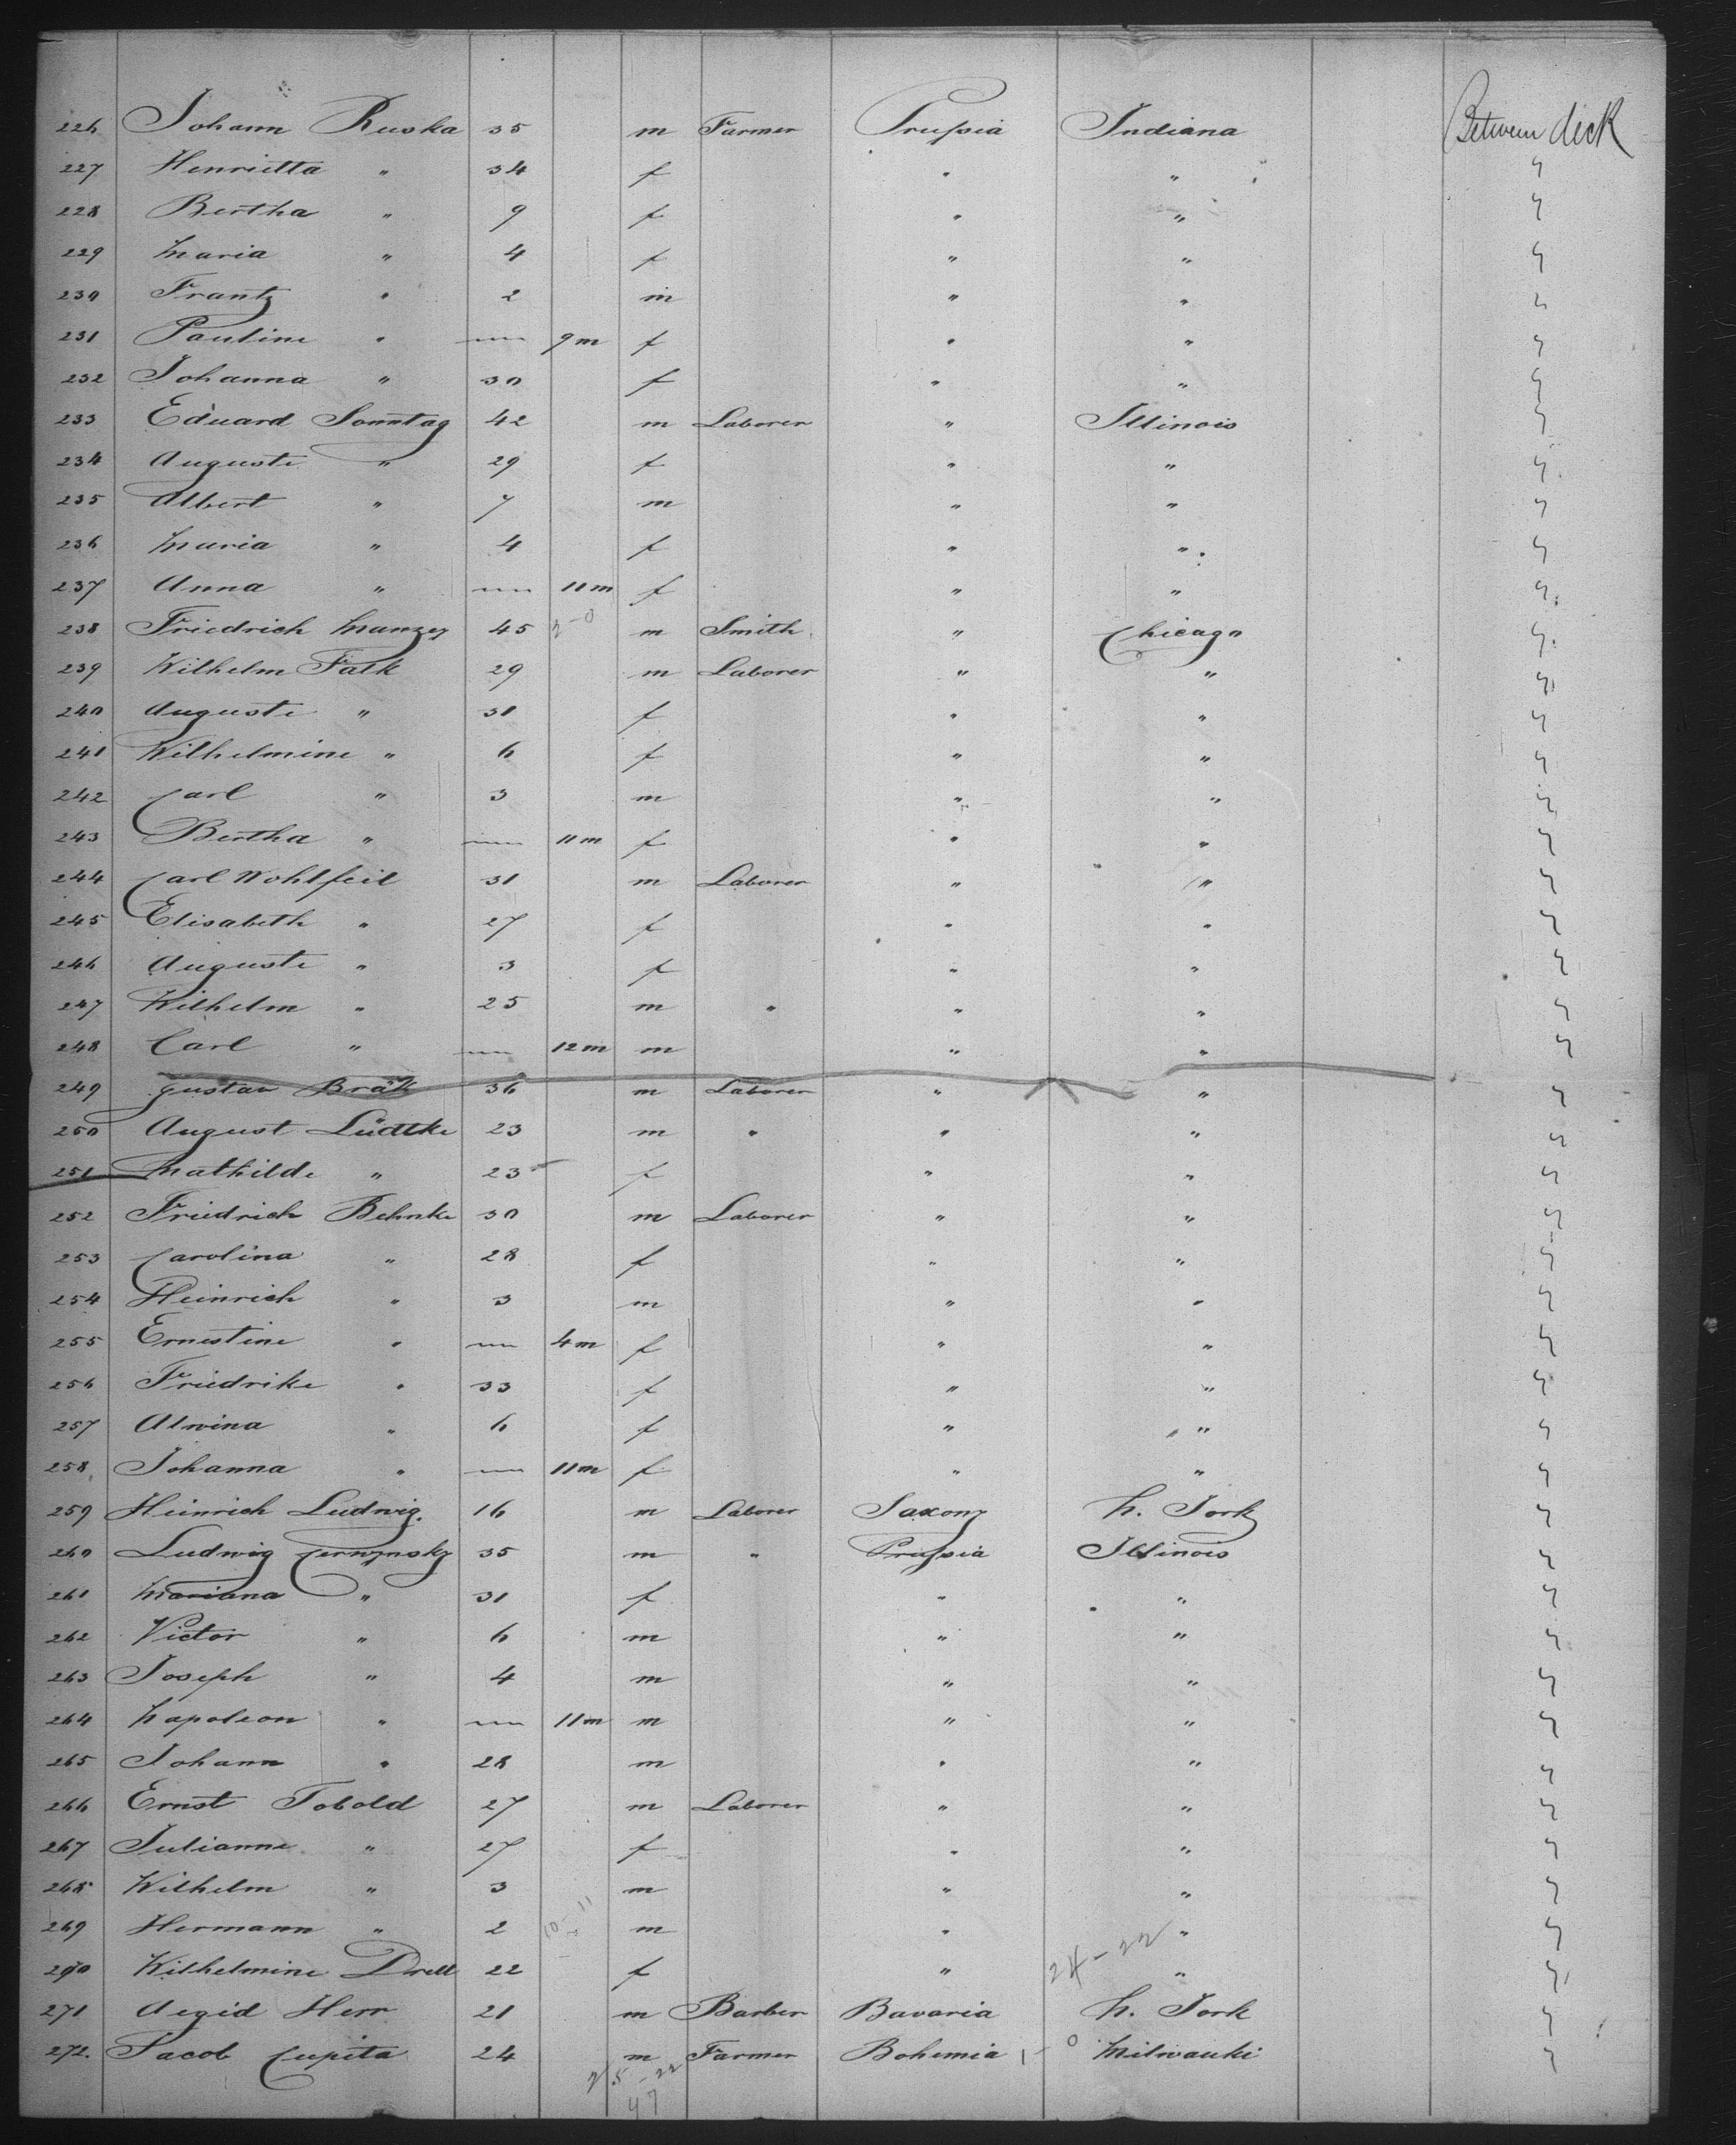 226 Johann Ruska 35 m Farmer Prussia Indiana Between deck
227 Henrietta " 34 f " " "
228 Bertha " 9 f " " "
229 Maria " 4 f " " "
230 Frantz " 2 m " " "
231 Pauline " — 9m f " " "
232 Johanna " 30 f " " "
233 Eduard Sonntag 42 m Laborer " Illinois "
234 Auguste " 29 f " " "
235 Albert " 7 m " " "
236 Maria " 4 f " " "
237 Anna " — 11m f " " "
238 Friedrich Manzey 45 2-0 m Smith " Chicago "
239 Wilhelm Falk 29 m Laborer " " "
240 Auguste " 31 f " " "
241 Wilhelmine " 6 f " " "
242 Carl " 3 m " " "
243 Bertha " — 11m f " " "
244 Carl Wohlfeil 31 m Laborer " " "
245 Elisabeth " 27 f " " "
246 Auguste " 3 f " " "
247 Wilhelm " 25 m " " " "
248 Carl " — 12m m " " "
249 Gustav 36 m Laborer " " "
250 August Lüdtke 23 m " " " "
251 Mathilde " 23 f " " "
252 Friedrich Behnke 30 m Laborer " " "
253 Carolina " 28 f " " "
254 Heinrich " 3 m " " "
255 Ernestine " — 4m f " " "
256 Friedrike " 33 f " " "
257 Alwina " 6 f " " "
258 Johanna " — 11m f " " "
259 Heinrich Ludwig. 16 m Laborer Saxony N. York "
260 Ludwig Czerwynsky 35 m " Prussia Illinois "
261 Mariana " 31 f " " "
262 Victor " 6 m " " "
263 Joseph " 4 m " " "
264 Napoleon " — 11m m " " "
265 Johann " 28 m " " "
266 Ernst Tobold 27 m Laborer " " "
267 Julianne " 27 f " " "
268 Wilhelm " 3 m " " "
269 Hermann " 2 10-11 m " " "
270 Wilhelmine 22 f " 24-22 " "
271 Aegid Herr 21 m Barber Bavaria N. York "
272. Jacob Cupita 24 m Farmer Bohemia 1-0 Milwauki "
25-22
47